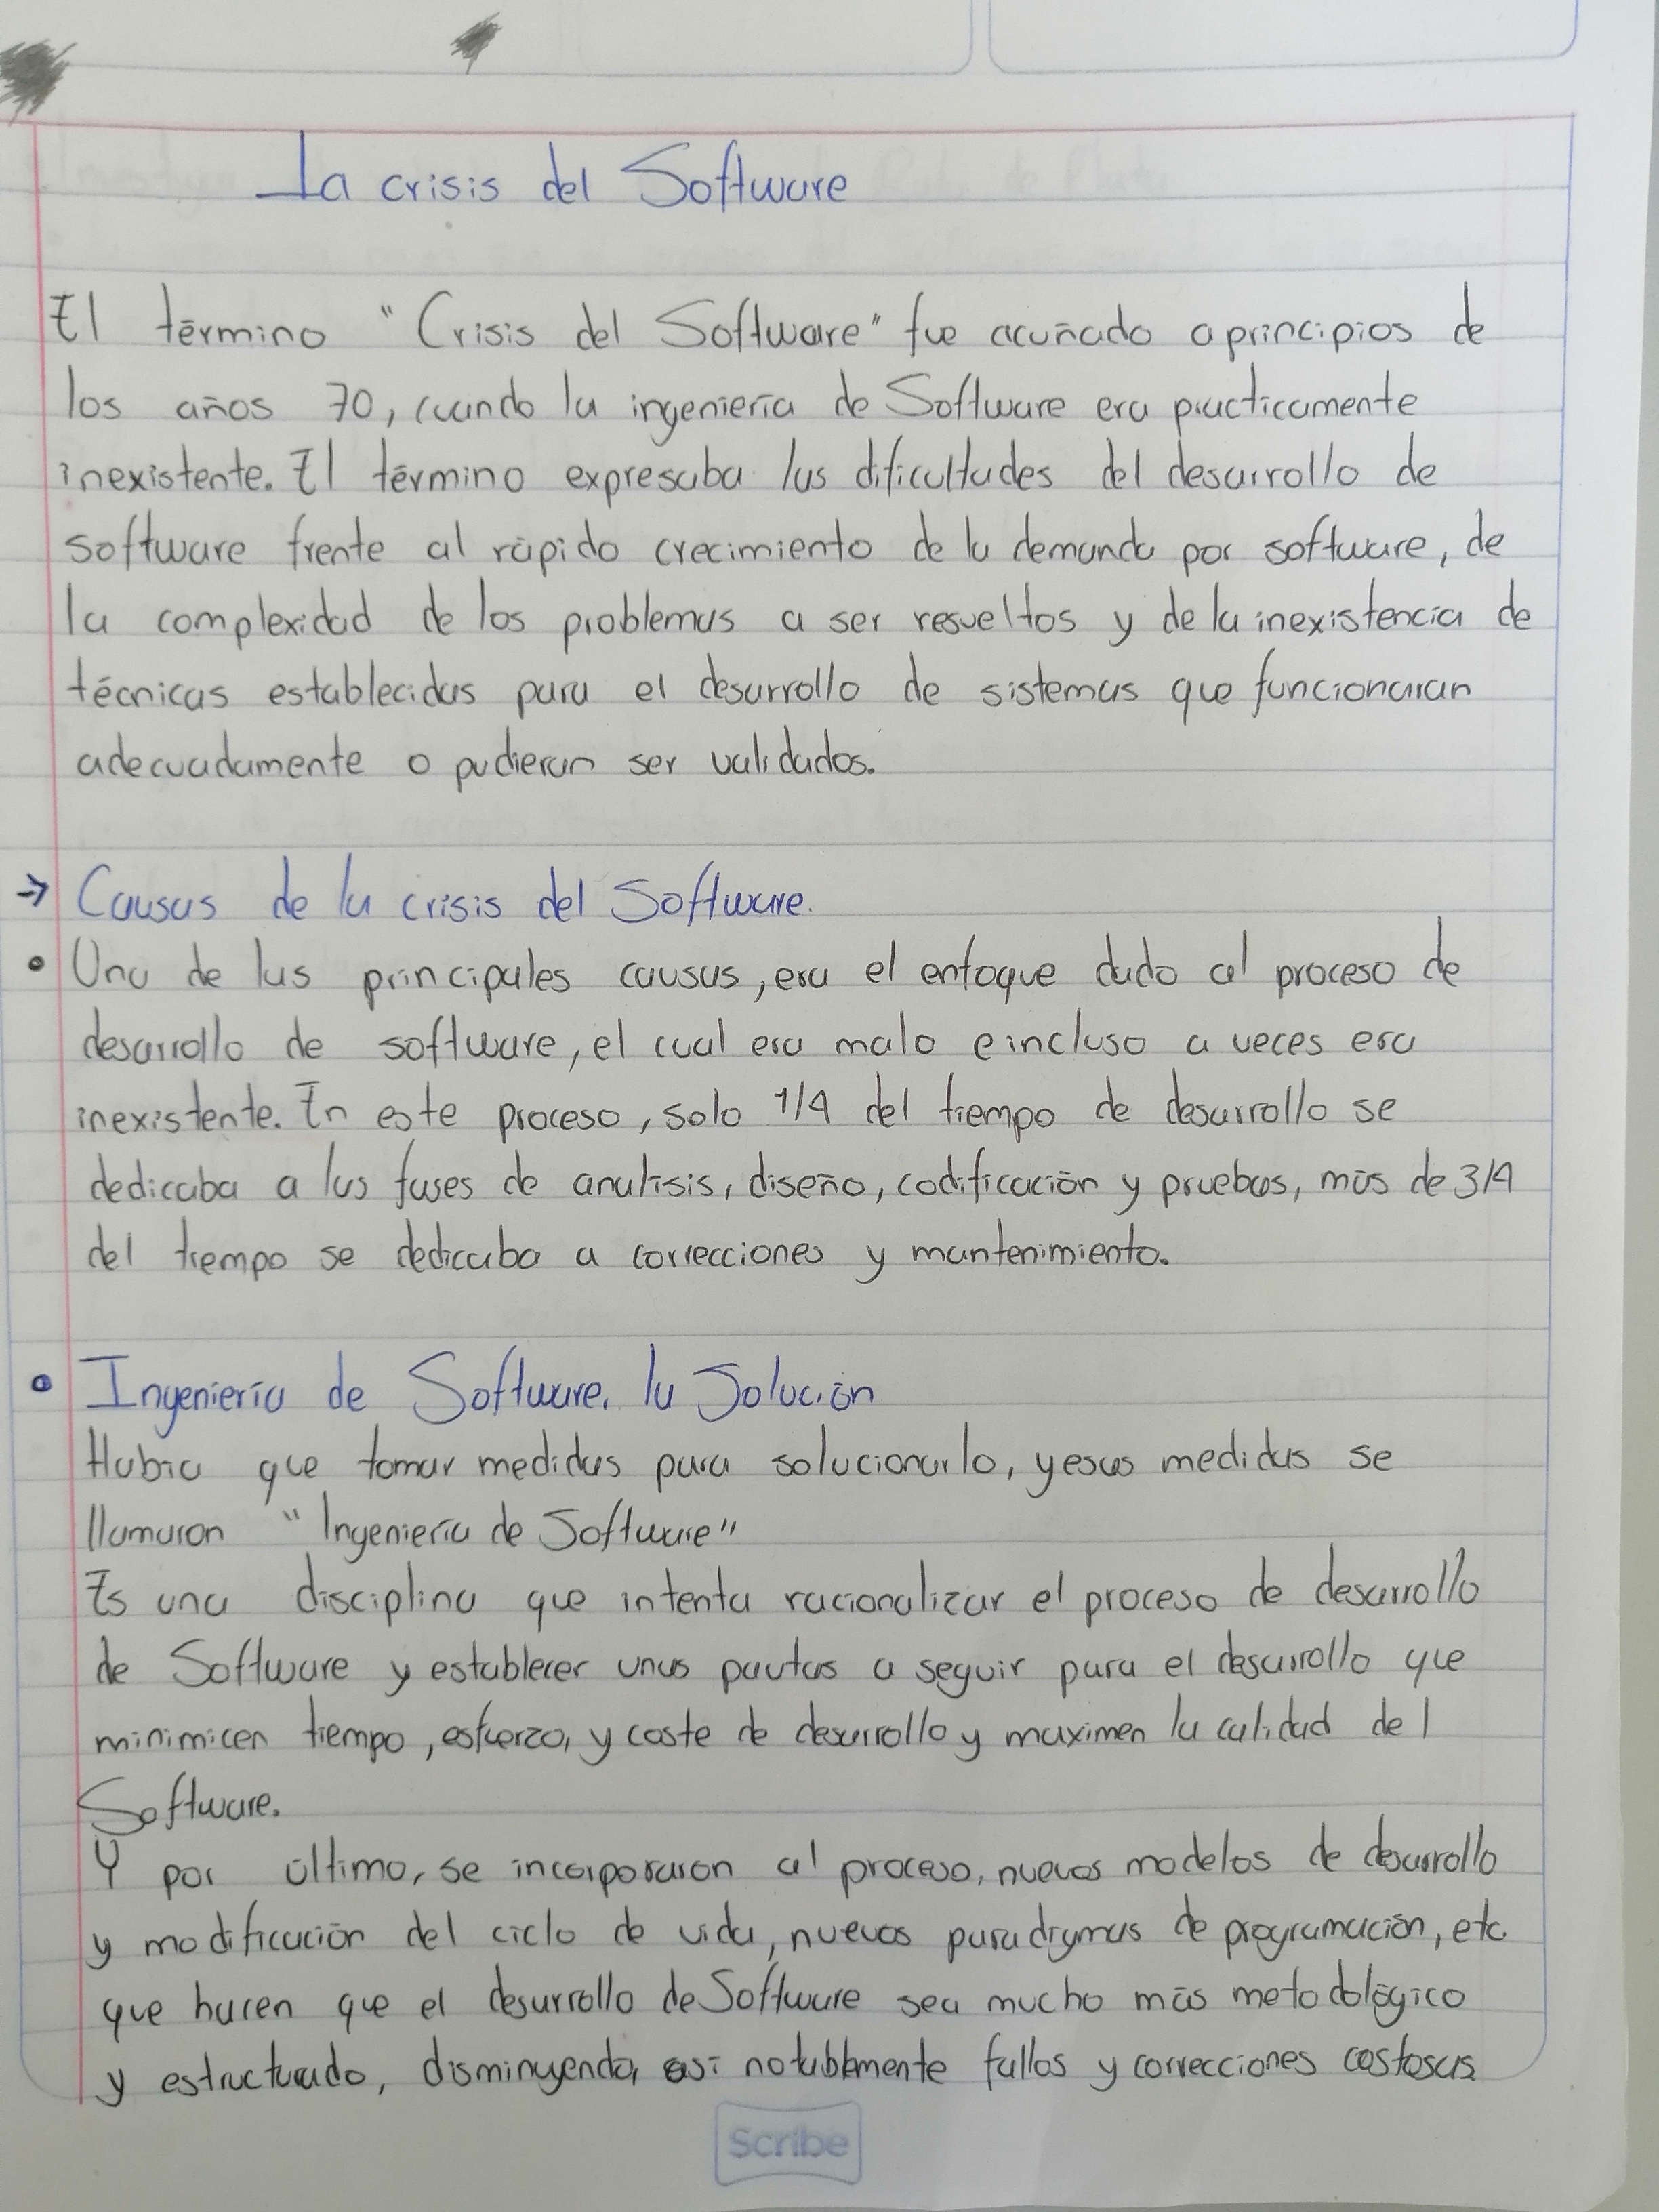 La crisis del Software
El término "Crisis del Software" fue acuñado a principios de
los años 70, cuando la ingeniería de Software era practicamente
inexistente. El término expresaba las dificultades del desarrollo de
software frente al rápido crecimiento de la demanda por software, de
la complexidad de los problemas a ser resueltos y de la inexistencia de
técnicas establecidas para el desarrollo de sistemas que funcionaran
adecuadamente o pudieran ser validados.
→ Causas de la crisis del Software.
• Una de las principales causas, era el enfoque dado al proceso de
desarrollo de software, el cual era malo e incluso a veces era
inexistente. En este proceso, solo 1/4 del tiempo de desarrollo se
dedicaba a las fases de analisis, diseño, codificación y pruebas, más de 3/4
del tiempo se dedicaba a correcciones y mantenimiento.
• Ingeniería de Software. la Solución
Había que tomar medidas para solucionarlo, y esas medidas se
llamaron "Ingeniería de Software"
Es una disciplina que intenta racionalizar el proceso de desarrollo
de Software y establecer unas pautas a seguir para el desarrollo que
minimicen tiempo, esfuerzo, y coste de desarrollo y maximen la calidad del
Software.
Y por último, se incorporaron al proceso, nuevos modelos de desarrollo
y modificación del ciclo de vida, nuevos paradigmas de programación, etc.
que hacen que el desarrollo de Software sea mucho más metodológico
y estructurado, disminuyendo, así notablemente fallos y correcciones costosas
Scribe